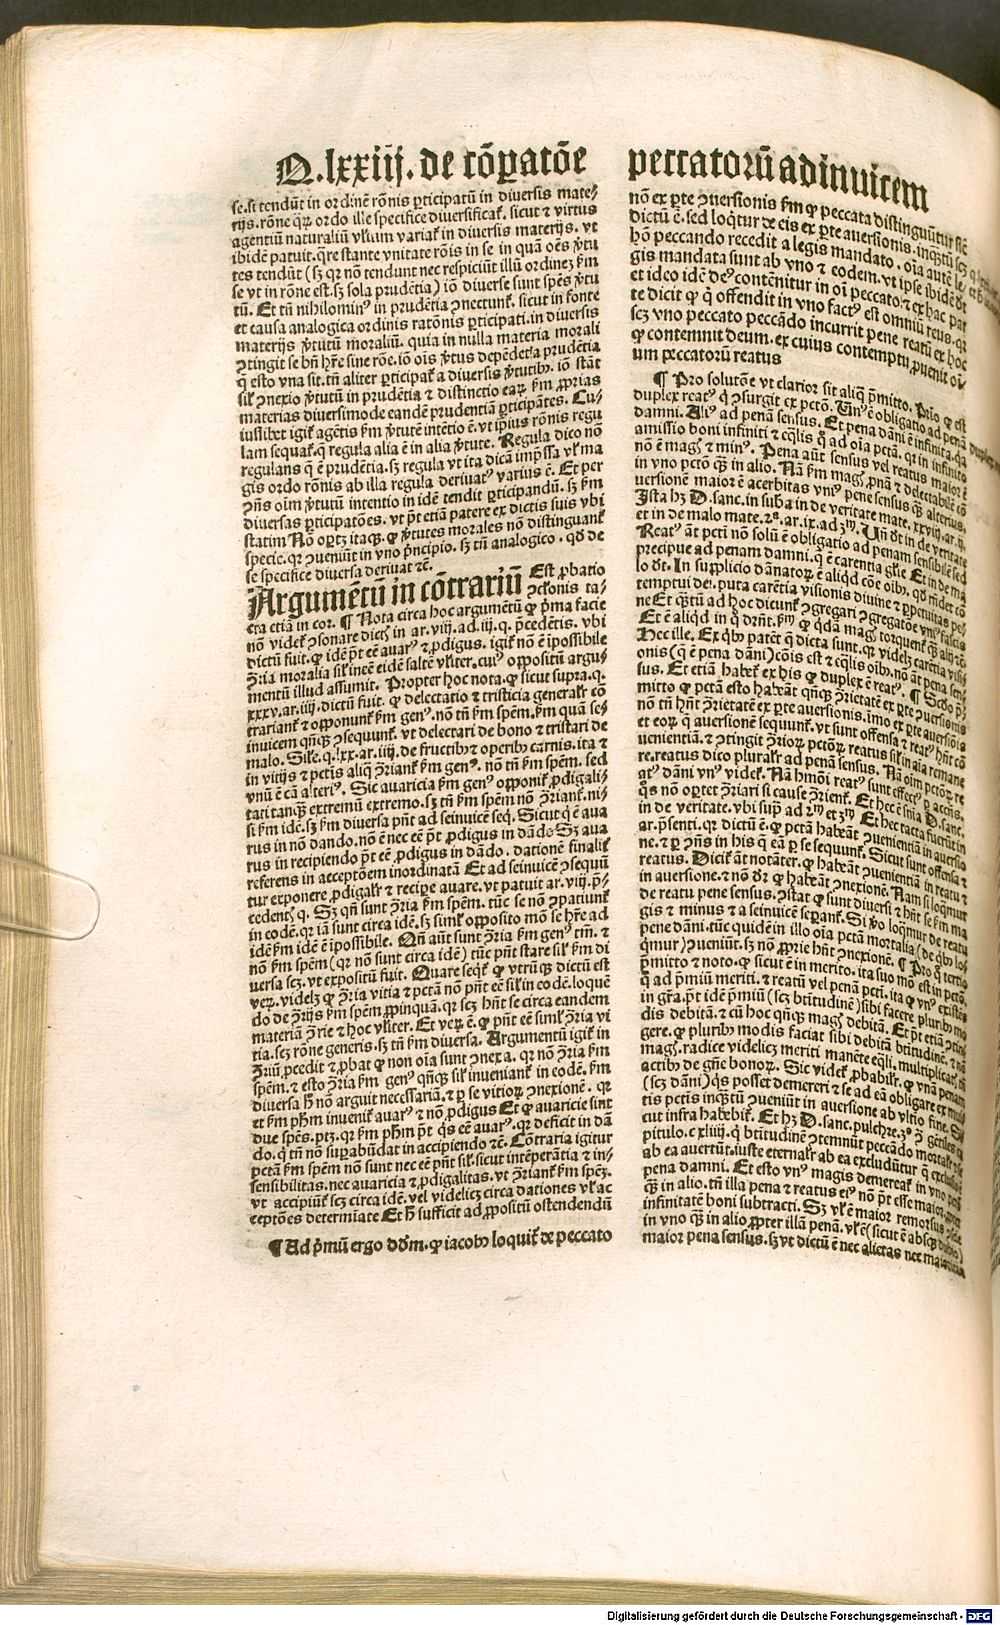 Q. lxxiij. de cōꝑatōe peccatorū adinuicem
se. si tendūt in ordinē rōnis ꝑticipatū in diuersis mate/
rijs. rōne quaꝝ ordo ille specifice diuersificaꞇ̃. sicut ⁊ virtus
agentiū naturaliū vl̓ium variaꞇ̃ in diuersis materijs. vt
ibidē patuit. q̄re stante vnitate rōis in se in quā oēs ꝟtu
tes tendūt (sꝫ qꝛ nō tendunt nec respiciūt illū ordinē ẜm
se vt in rōne est. sꝫ sola prudētia) iō diuerse sunt spēs ꝟtu
tū. Et tn̄ nihilominꝰ in prudētia ↄnectunꞇ̃. sicut in fonte
et causa analogica ordinis ratōnis ꝑticipati. in diuersis
materijs ꝟtutū moraliū. quia in nulla materia morali
ↄtingit se bn̄ hr̄e sine rōe. iō oīs ꝟtus depēdet a prudētia
q̄ esto vna sit. tn̄ aliter ꝑticipaꞇ̃ a diuersis ꝟtutibꝫ. iō stāt
sil̓ ↄnexio ꝟtutū in prudētia ⁊ distinctio eaꝝ ẜm ꝓprias
materias diuersimode eandē prudentiā ꝑticipātes. Cu/
iuslibet igiꞇ̃ agētis ẜm ꝟtutē intētio ē. vt ip̄ius rōnis regu
lam sequaꞇ̃. q̄ regula alia ē in alia ꝟtute. Regula dico nō
regulans q̄ ē prudētia. sꝫ regula vt ita dicā imp̄ssa vl̓ ma
gis ordo rōnis ab illa regula deriuatꝰ varius ē. Et per
ↄn̄s oīm ꝟtutū intentio in idē tendit ꝑticipandū. sꝫ ẜm
diuersas ꝑticipatōes. vt pꝫ etiā patere ex dictis suis vbi
statim Nō oportꝫ itaqꝫ. ꝙ ꝟtutes morales nō distinguanꞇ̃
specie. qꝛ ↄueniūt in vno p̄ncipio. sꝫ tn̄ analogico. qd̄ de
se specifice diuersa deriuat ꝛc̄.
Argumētū in cōtrariū Est ꝓbatio
ↄclonis ta/
cta etiā in cor. ¶ Nota circa hoc argumētū ꝙ p̄ma facie
nō videꞇ̃ ↄsonare dictꝭ in ar. viij. ad. iij. q. p̄cedētis. vbi
dictū fuit. ꝙ idē pn̄t eē auarꝰ ⁊ ꝓdigus. igiꞇ̃ nō ē īpossibile
ↄ̄ria moralia sil̓ ineē eidē saltē vl̓iter. cuiꝰ oppositū argu
mentū illud assumit. Propter hoc nota. ꝙ sicut supra. q.
xxxv. ar. iiij. dictū fuit. ꝙ delectatio ⁊ tristicia generalr̄ cō
trarianꞇ̃ ⁊ opponunꞇ̃ ẜm genꝰ. nō tn̄ ẜm spēm. ẜm quā se/
inuicem qn̄qꝫ ↄsequunꞇ̃. vt delectari de bono ⁊ tristari de
malo. Sil̓e. q. lxx. ar. iiij. de fructibꝫ ⁊ operibꝫ carnis. ita ⁊
in vitijs ⁊ petīs aliq̄ ↄ̄rianꞇ̃ ẜm genꝰ. nō tn̄ ẜm spēm. sed
vnū ē cā alteriꝰ. Sic auaricia ẜm genꝰ opponiꞇ̃ ꝓdigali/
tati tanqꝫ extremū extremo. sꝫ tn̄ ẜm spēm nō ↄ̄rianꞇ̃. ni/
si ẜm idē. sꝫ ẜm diuersa pn̄t ad seinuicē seq̄. Sicut q̄ ē aua
rus in nō dando. nō ē nec eē pōt ꝓdigus in dādo Sꝫ aua
rus in recipiendo pōt eē ꝓdigus in dādo. dationē finaliꞇ̃
referens in acceptōem inordinatā Et ad seinuicē ↄsequū
tur exponere ꝓdigalr̄ ⁊ recipe auare. vt patuit ar. viij. p̄/
cedentꝭ q. Sꝫ qn̄ sunt ↄ̄ria ẜm spēm. tūc se nō ↄpatiunꞇ̃
in eodē. qꝛ iā sunt circa idē. sꝫ siml̓ opposito mō se hr̄e ad
idē ẜm idē ē īpossibile. Qn̄ aūt sunt ↄ̄ria ẜm genꝰ tm̄. ⁊
nō ẜm spēm (qꝛ nō sunt circa idē) tūc pn̄t stare sil̓ ẜm di
uersa scꝫ. vt expositū fuit. Quare seqꞇ̃ ꝙ vtrūqꝫ dictū est
veꝝ. videlꝫ ꝙ ↄ̄ria vitia ⁊ pctā nō pn̄t eē sil̓ in eodē. loquē
do de ↄ̄rijs ẜm spēm ꝓpinquā. qꝛ scꝫ hn̄t se circa eandem
materiā ↄ̄rie ⁊ hoc vl̓iter. Et veꝝ ē. ꝙ pn̄t eē siml̓ ↄ̄ria vi
tia. scꝫ rōne generis. sꝫ tn̄ ẜm diuersa. Argumentū igiꞇ̃ in
ↄ̄riū ꝓcedit ⁊ ꝓbat ꝙ non oīa sunt ↄnexa. qꝛ nō ↄ̄ria ẜm
spēm. ⁊ esto ↄ̄ria ẜm genꝰ qn̄qꝫ sil̓ inueniant̄ in eodē. ẜm
diuersa hoc nō arguit necessariā. ⁊ ꝑ se vitioꝝ ↄnexionē. qꝛ
et ẜm phm̄ inueniꞇ̃ auarꝰ ⁊ nō ꝓdigus Et ꝙ auaricie sint
due spēs. ptꝫ. qꝛ ẜm phm̄ pōt q̄s eē auarꝰ. qꝛ deficit in dā
do. q̄ tn̄ nō suꝑabūdat in accipiendo ꝛc̄. Cōtraria igitur
pctā ẜm spēm nō sunt nec eē pn̄t sil̓. sicut intēperātia ⁊ in/
sensibilitas. nec auaricia ⁊ ꝓdigalitas. vt ↄ̄rianꞇ̃ ẜm spēꝫ.
vt accipiūꞇ̃ scꝫ circa idē. vel videlicꝫ circa dationes vl̓ ac
ceptōes determiate Et hoc sufficit ad ꝓpositū ostendendū
¶ Ad p̄mū ergo dōm. ꝙ iacobꝫ loquiꞇ̃ de peccato
nō ex ꝑte ↄuersionis ẜm ꝙ peccata distinguūtur sic̄
dictū ē. sed loqꞇ̃ur de eis ex ꝑte auersionis. inqꝫtū scꝫ
hō peccando recedit a legis mandato. oīa autē le/
gis mandata sunt ab vno ⁊ eodem. vt ipse ibidē dt̄
et ideo idē deꝰ contēnitur in oī peccato. ⁊ ex hac par
te dicit ꝙ q̄ offendit in vno factꝰ est omniū reus. qꝛ
scꝫ vno peccato peccādo incurrit pene reatū ex hoc
ꝙ contemnit deum. ex cuius contemptu ꝓuenit oī/
um peccatorū reatus
¶ Pro solutōe vt clarior sit aliq̄ p̄mitto. Pͥo ꝙ est
duplex reatꝰ q̄ ↄsurgit ex pctō. Vnꝰ ē obligatio ad penā
damni. Aliꝰ ad penā sensus. Et pena dāni ē infinita. qꝛ
amissio boni infiniti ⁊ eq̄lis q̄ ad oīa pctā. qꝛ in infinito
nō ē magꝭ ⁊ minꝰ. Pena aūt sensus vel reatus maior ē
in vno pctō qꝫ in alio. Nā ẜm magꝭ ꝓnā ⁊ delectabilē cō
uersionē maior ē acerbitas vniꝰ pene sensus qꝫ alterius.
Ista hꝫ D. sanc. in suba in de veritate mate. xxviij. ar. ij.
et in de malo mate. 2ͣ. ar. ix. ad 3ͫ. Vn̄ dt̄ in de veritate
Reatꝰ āt pctī nō solū ē obligatio ad penam sensibilē sed
precipue ad penam damni. q̄ ē carentia gl̓ie Et in de ma
lo dt̄. In supplicio dānatoꝝ ē aliqd cōe oībꝫ. qd̄ rn̄det cō
temptui dei. puta carētia visionis diuine ⁊ ꝑpetuitas pe/
ne Et qꝫtū ad hoc dicunꞇ̃ ↄgregari ↄgregatōe vniꝰ fascis
Et ē aliqd in q̄ dr̄nt. ẜm ꝙ qdā magꝭ torquenꞇ̃ qꝫ alij ꝛc̄.
Hec ille. Ex qbꝫ patet q̄ dicta sunt. qꝛ videlꝫ carētia visi
onis (q̄ ē pena dāni) cōis est ⁊ eq̄lis oībꝫ. nō āt pena sen/
sus. Et etiā habeꞇ̃ ex his ꝙ duplex ē reatꝰ. ¶ Scd̄o p̄/
mitto ꝙ pctā esto habeāt qn̄qꝫ ↄ̄rietatē ex ꝑte ↄuersionis
nō tn̄ hn̄t ↄ̄rietatē ex ꝑte auersionis. imo ex ꝑte auersiōis
et eoꝝ q̄ auersionē sequunꞇ̃. vt sunt offensa ⁊ reatꝰ hn̄t cō
uenientiā. ⁊ ↄtingit ↄ̄rioꝝ pctōꝝ reatus sil̓ in aīa remane
re. reatus dico pluralr̄ ad penā sensus. Nā oīm pctōꝝ re
atꝰ dāni vnꝰ videꞇ̃. Nā hmōi reatꝰ sunt effectꝰ ꝑ accn̄s.
q̄s nō oportet ↄ̄riari si cause ↄ̄rienꞇ̃. Et hec ē snīa D. sanc.
in de veritate. vbi supͣ ad 2ͫ et 3ͫ Et hec tacta fuerūt in
ar. p̄senti. qꝛ dictū ē. ꝙ pctā habeāt ↄuenientiā in auersio
ne. ⁊ ꝑ ↄn̄s in his q̄ eā ꝑ se sequunꞇ̃. Sicut sunt offensa ⁊
reatus. Diciꞇ̃ āt notāter. ꝙ habeāt ↄuenientiā in reatu ⁊
in auersione. ⁊ nō dr̄ ꝙ habeāt ↄnexionē. Nam si loqmur
de reatu pene sensus. ↄstat ꝙ sunt diuersi ⁊ hn̄t se ẜm ma
gis ⁊ minus ⁊ a seinuicē seꝑanꞇ̃. Si ꝟo loqmur de reatu
pene dāni. tūc quidē in illo oīa pctā mortalia (de qbꝫ lo/
q̄mur) ↄueniūt. sꝫ nō ꝓprie hn̄t ↄnexionē. ¶ Pro q̄ tertio
p̄mitto ⁊ noto. ꝙ sicut ē in merito. ita suo mō est in pctō.
q̄ ad p̄miū meriti. ⁊ reatū vel penā pctī. ita ꝙ vnꝰ existēs
in gr̄a. pōt idē p̄miū (scꝫ btītudinē) sibi facere pluribꝫ mo
dis debitā. ⁊ cū hoc qn̄qꝫ magꝭ debitā. Et pōt etiā ↄtin/
gere. ꝙ pluribꝫ modis faciat sibi debitā btītudinē. ⁊ nō
magꝭ. radice videlicꝫ meriti manēte eq̄li. multiplicatꝭ tn̄
actibꝫ de gn̄e bonoꝝ. Sic videꞇ̃ ꝓbabilr̄. ꝙ vnā penam
(scꝫ dāni) q̄s posset demereri ⁊ se ad eā obligare ex mul/
tis pctīs inqꝫtū ↄueniūt in auersione ab vltio fine. Si
cut infra habebiꞇ̃. Et hꝫ D. sanc. pulchre. 3ͦ ↄ̄ gētiles ca
pitulo. cxliiij. q̄ btītudinē ↄtemnūt peccādo mortalr̄
ab ea auertūꞇ̃. iuste eternalr̄ ab ea excludūtur q̄ exclusio
pena damni. Et esto vnꝰ magis demereaꞇ̃ in vno pctō
qꝫ in alio. tn̄ illa pena ⁊ reatus eiꝰ nō pōt esse maior. ꝓpter
infinitatē boni subtracti. Sꝫ vl̓ ē maior remorsus
in vno qꝫ in alio ꝓpter illā penā. vl̓ ē (sicut ē absqꝫ dubio)
maior pena sensus. sꝫ vt dictū ē nec alietas nec maioritas
Digitalisierung gefördert durch die Deutsche Forschungsgemeinschaft - DFG